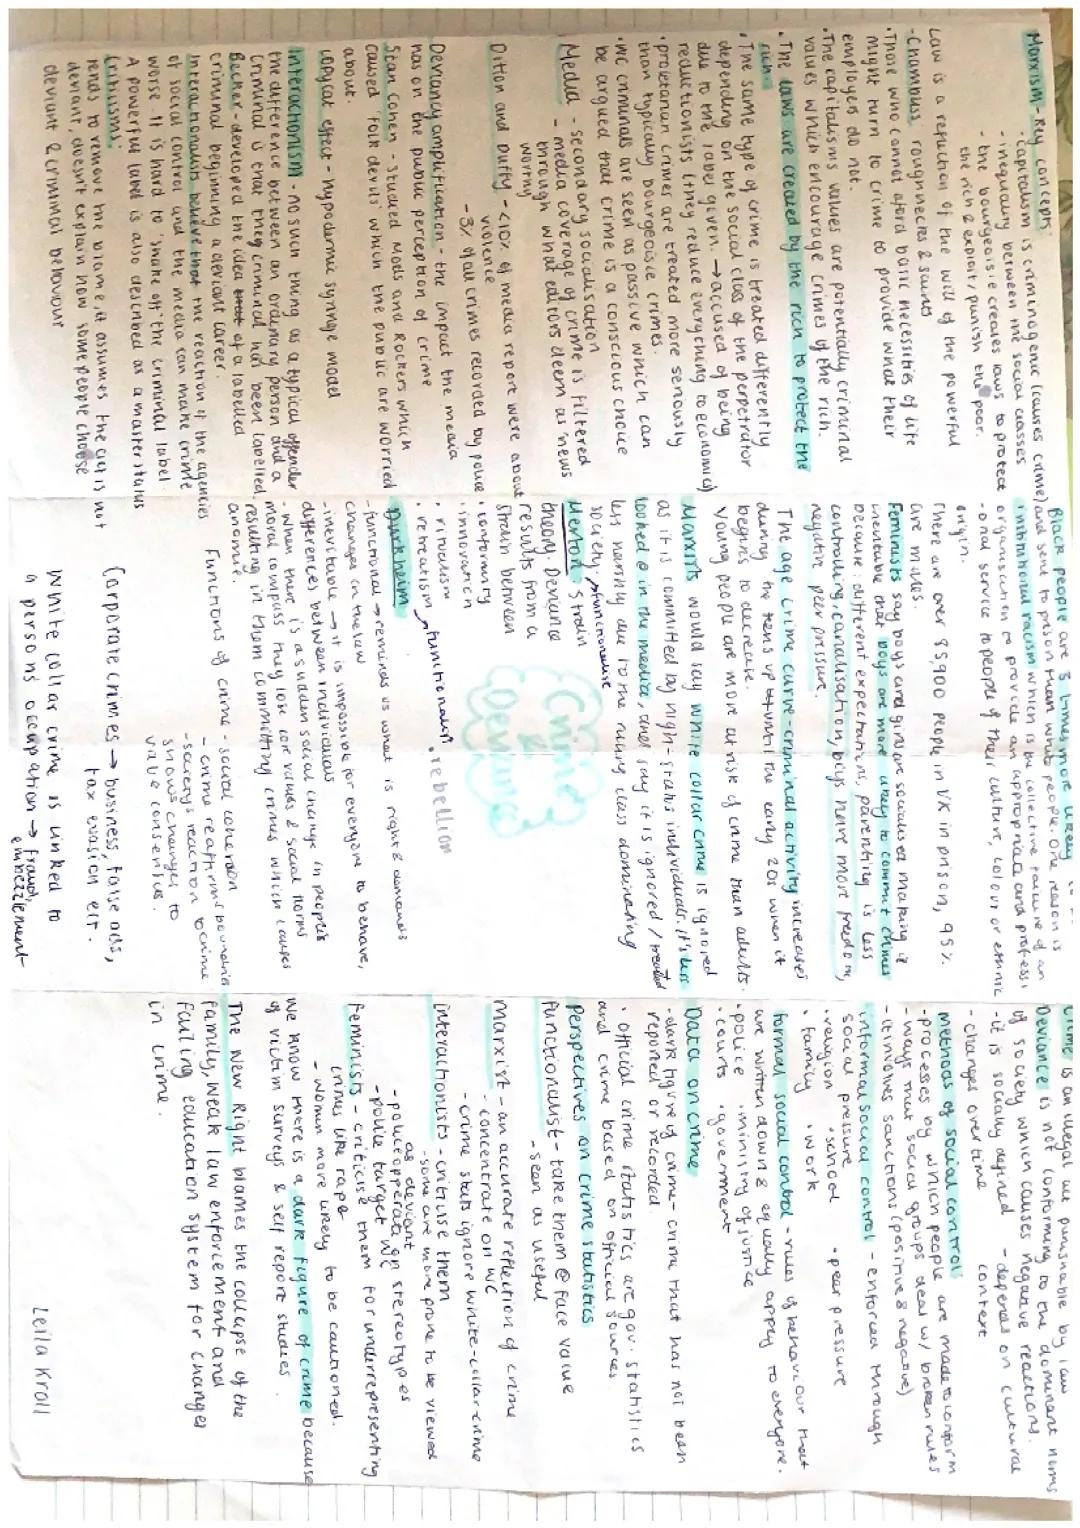 Marxism - Key concepts:
- capitalism is criminogenic (causes crime)
- inequality between the social classes
- the bourgeoisie creates laws to protect
the rich & exploit/punish the poor.
Law is a reflection of the will of the powerful
- Chambliss: roughnecks & saints
• Those who cannot afford basic necessities of life
might turn to crime to provide what their
employers do not.
• The capitalisms values are potentially criminal
values which encourage crimes of the rich.
• The laws are created by the rich to protect the
rich.
• The same type of crime is treated differently
depending on the social class of the perpetrator
due to the label given. → accused of being
reductionists (they reduce everything to economics)
• proletarian crimes are treated more seriously
than typically bourgeoisie crimes.
• WC criminals are seen as passive which can
be argued that crime is a conscious choice
Media - secondary socialisation
- media coverage of crime is filtered
through what editors deem as 'news
worthy
Ditton and Duffy - <10% of media report were about
violence
- 3% of all crimes recorded by police
Deviancy amplification - the impact the media
has on the public perception of crime
Stan Cohen - studied Mods and Rockers which
caused 'folk devils' which the public are worried
about.
copycat effect - hypodermic syringe model
Interactionism - no such thing as a typical offender
the difference between an ordinary person and a
criminal is that they criminal has been labelled.
Becker - developed the idea of a labelled
criminal begining a deviant career.
Interactionalists believe that the reaction of the agencies
of social control and the media can make crime
worse. It is hard to 'shake off' the criminal label.
A powerful label is also described as a master status
Critisisms:
tends to remove the blame, it assumes the act is not
deviant, doesn't explain how some people choose
deviant & criminal behaviour
Black people are 3 times more likely to
and sent to prison than white people. One reason is
institutional racism which is the collective failure of an
organisation to provide an appropriate and professi
-onal service to people of their culture, colour or ethnic
origin.
There are over 85,900 people in UK in prison, 95%
are males.
Feminists say boys and girls are socialised making it
inevitable that boys are more likely to commit crimes
because: different expectations, parenting is less
controlling, canalisation, boys have more freedom,
negative peer pressure.
The age crime curve - criminal activity increases
during the teens up until the early 20s when it
begins to decrease.
Young people are more at risk of crime than adults.
Marxists would say white collar crime is ignored
as it is committed by high-status individuals. It's less
looked @ in the media, and say it is ignored / treated
less harshly due to the ruling class dominating
society.
Merton: Strain
theory. Deviance
results from a
strain between
• conformity
• innovation
• ritualism
• retreatism
• rebellion
functionalism
Crime &
Deviance
Durkheim
- functional → reminds us what is right & demands
changes in the law
- inevitable → it is impossible for everyone to behave,
differences between individuals
- When there is a sudden social change in people's
moral compass they lose for values & social norms
resulting in them committing crimes which causes
anomie.
Functions of crime - social cohesion
- crime reaffirms boundaries
- societys reaction to crime
shows changes to
value consensus.
Corporate crimes → business, false ads,
tax evasion ect.
White collar crime is linked to
a person's occupation → fraud,
embezzlement
Crime is an illegal act punishable by law
Deviance is not conforming to the dominant norms
of society which causes negative reactions.
- it is socially defined - depends on cultural
- changes over time context
methods of social control:
- processes by which people are made to conform
- ways that social groups deal w/ broken rules
- it involves sanctions (positive & negative)
informal social control - enforced through
social pressure
• religion • school • peer pressure
• family • work
formal social control - rules of behaviour that
are written down & equally apply to everyone.
• police • ministry of justice
• courts • government
Data on crime
- dark figure of crime - crime that has not been
reported or recorded.
• official crime statistics are gov. statistics
and crime based on official sources.
Perspectives on crime statistics
Functionalist - take them @ face value
- seen as useful
Marxist - an accurate reflection of crime
- concentrate on WC
- crime stats ignore white-collar crime
interactionists - critisise them
- some are more prone to be viewed
as deviant
- police operate on stereotypes
- police target WC
Feminists - criticise them for underrepresenting
crimes like rape
- women more likely to be cautioned.
We know there is a dark figure of crime because
of victim surveys & self report studies.
The New Right blames the collapse of the
family, weak law enforcement and
failing education system for changes
in crime.
Leila Kroll